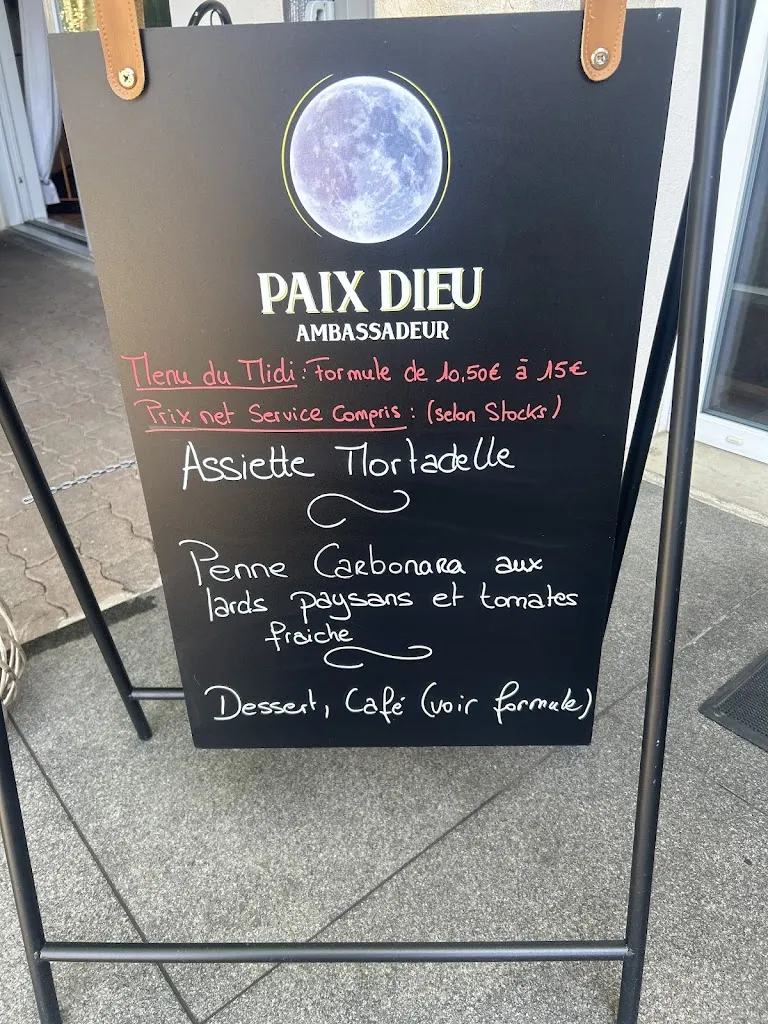 PAIX DIEU
AMBASSADEUR
Menu du Midi : Formule de 10,50€ à 15€
Prix net Service Compris : (selon Stocks)
Assiette Mortadelle
Penne Carbonara aux
lards paysans et tomates
fraiche
Dessert, Café (voir formule)